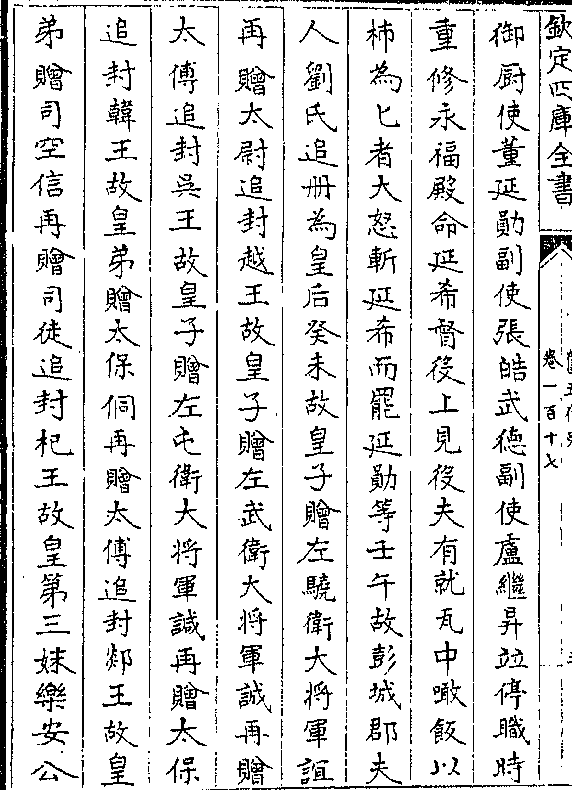 欽定四庫全書
卷一百十七
御厨使董延勛副使張皓武德副使盧繼昇竝停職時
重修永福殿命延希督役上見役夫有就瓦中噉飯以
柹為匕者大怒斬延希而罷延勛等壬午故彭城郡夫
人劉氏追册為皇后癸未故皇子贈左驍衛大將軍誼
再贈太尉追封越王故皇子贈左武衛大將軍諴再贈
太傅追封吳王故皇子贈左屯衛大將軍諴再贈太保
追封韓王故皇弟贈太保侗再贈太傅追封郯王故皇
弟贈司空信再贈司徒追封杞王故皇第三妹樂安公